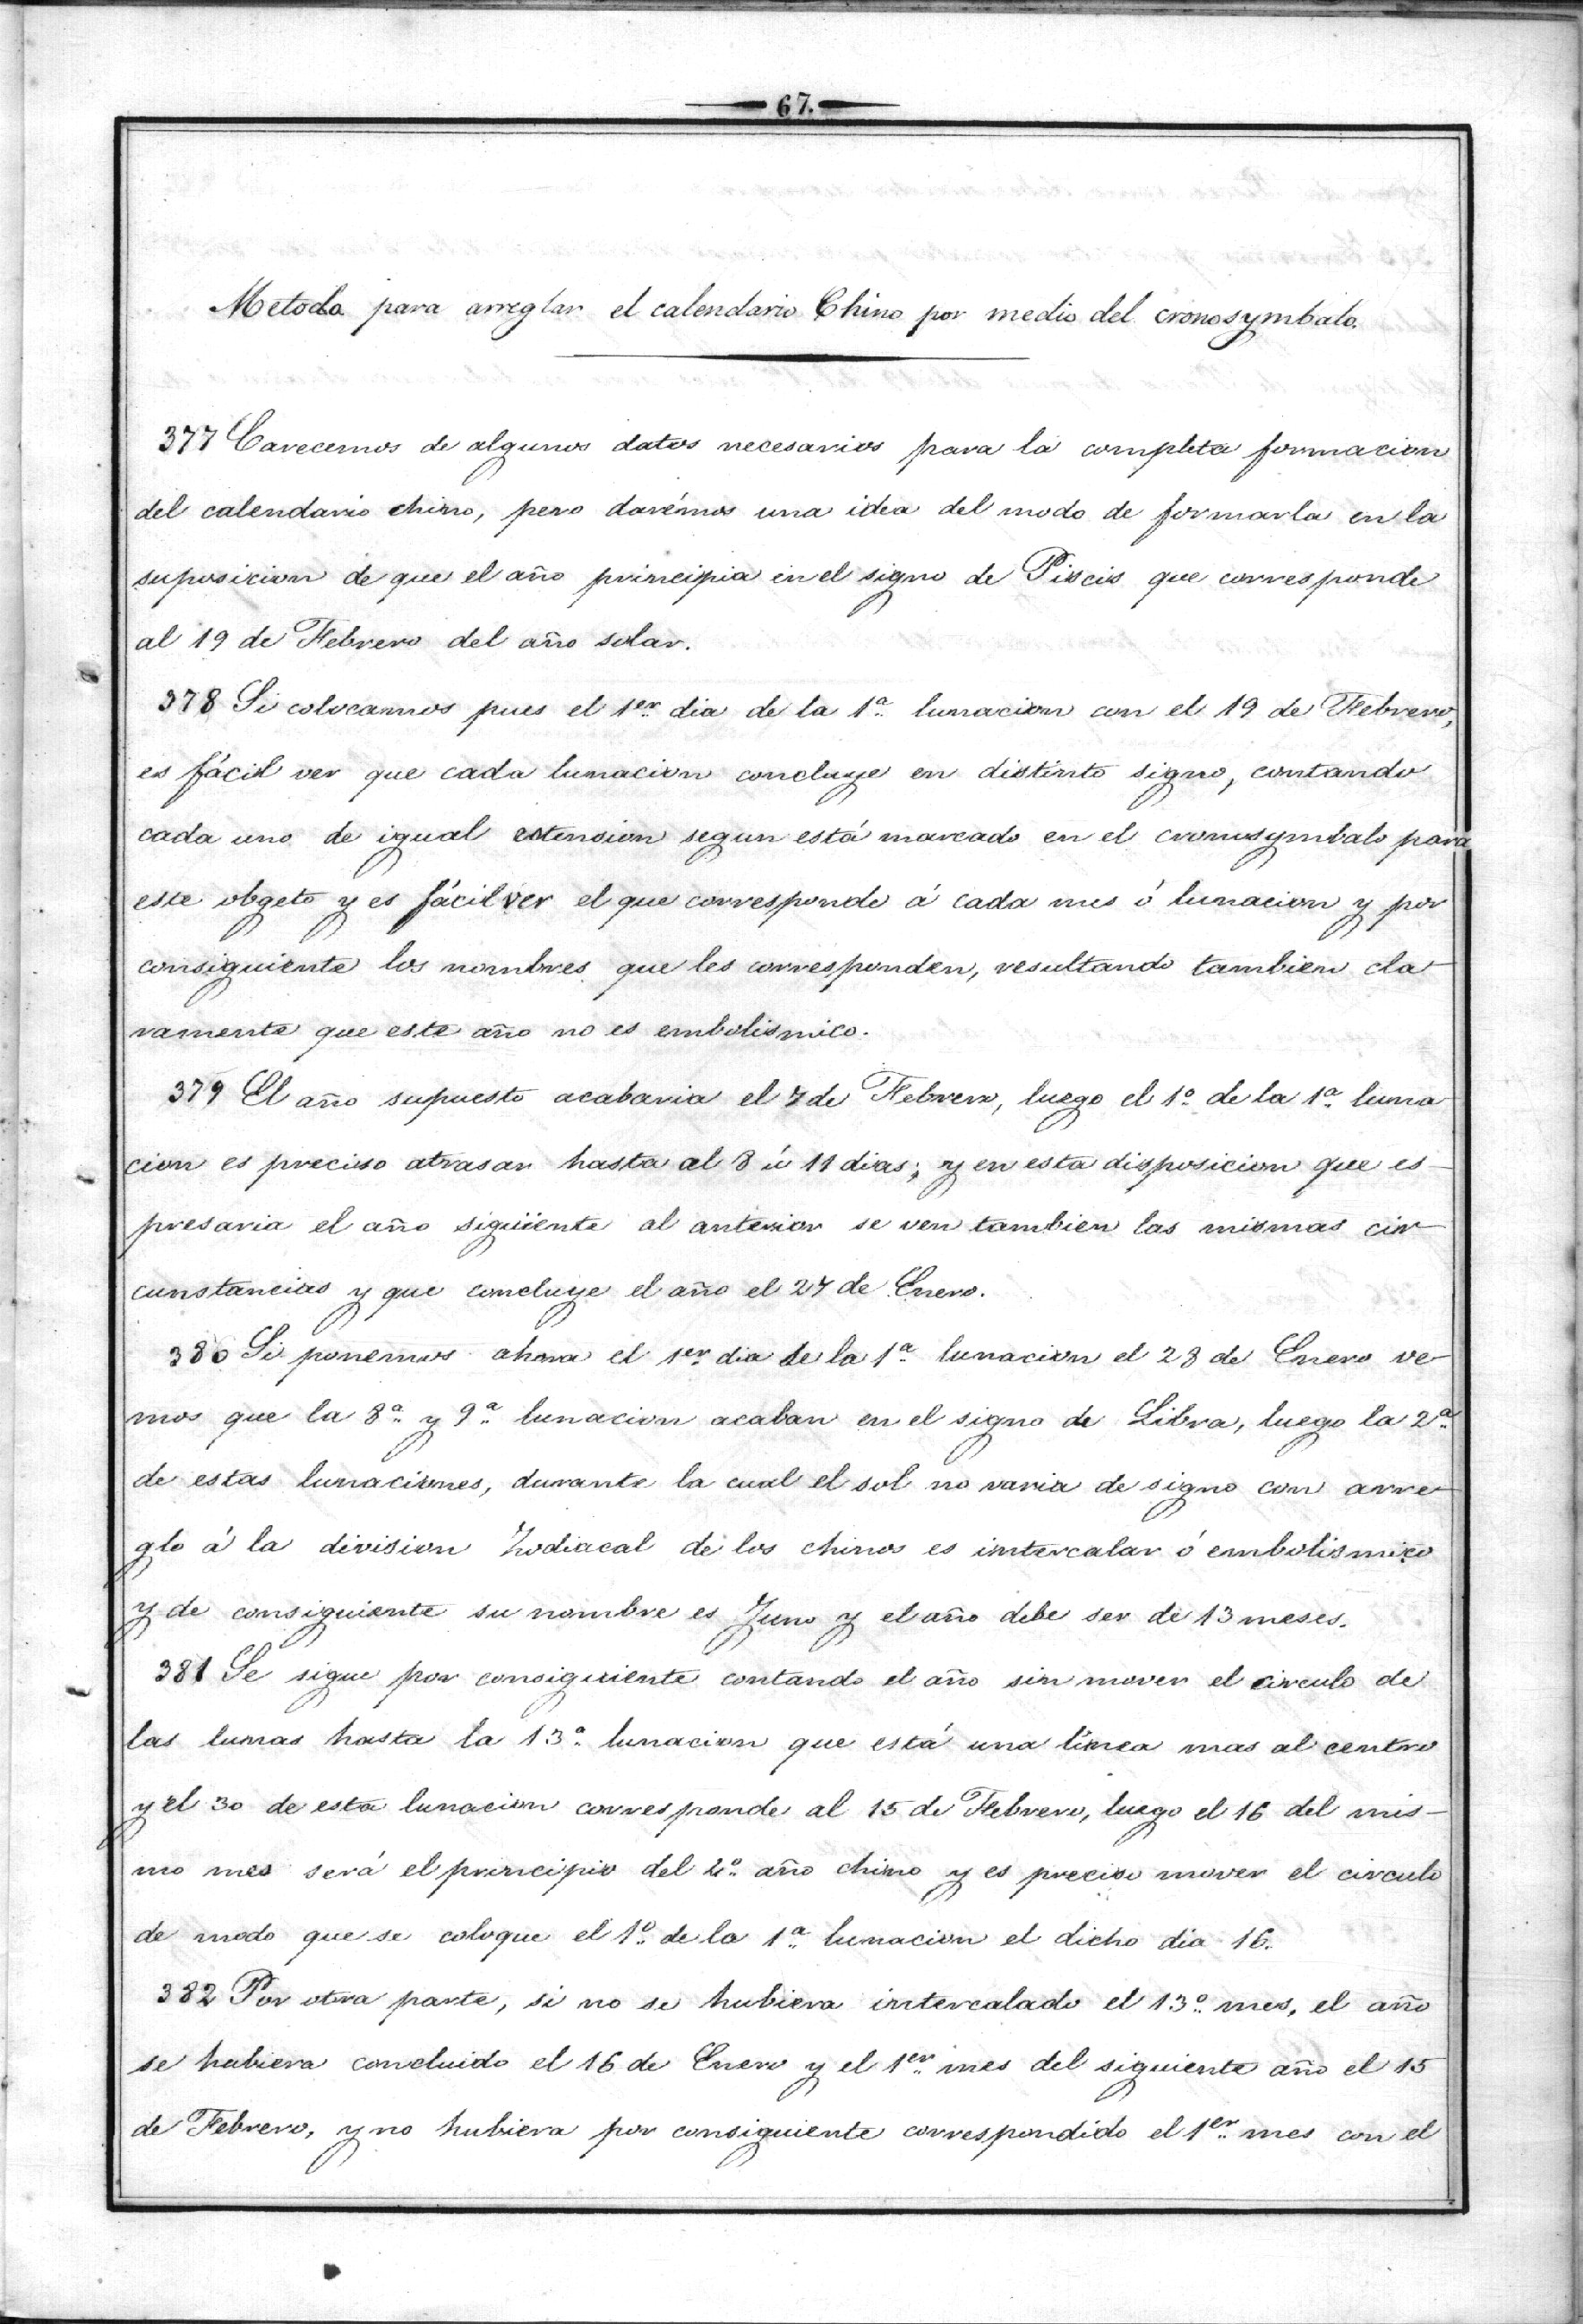 67.
Metodo para arreglar el calendario Chino por medio del cronosymbalo.
377 Carecemos de algunos datos necesarios para la completa formacion
del calendario chino, pero darémos una idea del modo de formarla en la
suposicion de que el año principia en el signo de Piscis que corresponde
al 19 de Febrero del año solar.
378 Si colocamos pues el 1er dia de la 1a lunacion con el 19 de Febrero,
es fácil ver que cada lunacion concluye en distinto signo, contando
cada uno de igual estension segun está marcado en el cronosymbalo para
este obgeto y es fácil ver el que corresponde á cada mes ó lunacion y por
consiguiente los nombres que les corresponden, resultando tambien cla-
ramente que este año no es embolismico.
379 El año supuesto acabaria el 7 de Febrero, luego el 1o de la 1a luna
cion es preciso atrasar hasta al 8 ú 11 dias; y en esta disposicion que es-
presaria el año siguiente al anterior se ven tambien las mismas cir-
cunstancias y que concluye el año el 27 de Enero.
380 Si ponemos ahora el 1er dia de la 1a lunacion el 28 de Enero ve-
mos que la 8a y 9a lunacion acaban en el signo de Libra, luego la 2a
de estas lunaciones, durante la cual el sol no varia de signo con arre-
glo á la division Zodiacal de los chinos es intercalar ó embolismico
y de consiguiente su nombre es Juno y el año debe ser de 13 meses.
381 Se sigue por consiguiente contando el año sin mover el circulo de
las lunas hasta la 13a lunacion que está una línea mas al centro
y el 30 de esta lunacion corresponde al 15 de Febrero, luego el 16 del mis-
mo mes será el principio del 4o año chino y es preciso mover el circulo
de modo que se coloque el 1o de la 1a lunacion el dicho dia 16.
382 Por otra parte, si no se hubiera intercalado el 13o mes, el año
se hubiera concluido el 16 de Enero y el 1er mes del siguiente año el 15
de Febrero, y no hubiera por consiguiente correspondido el 1er mes con el